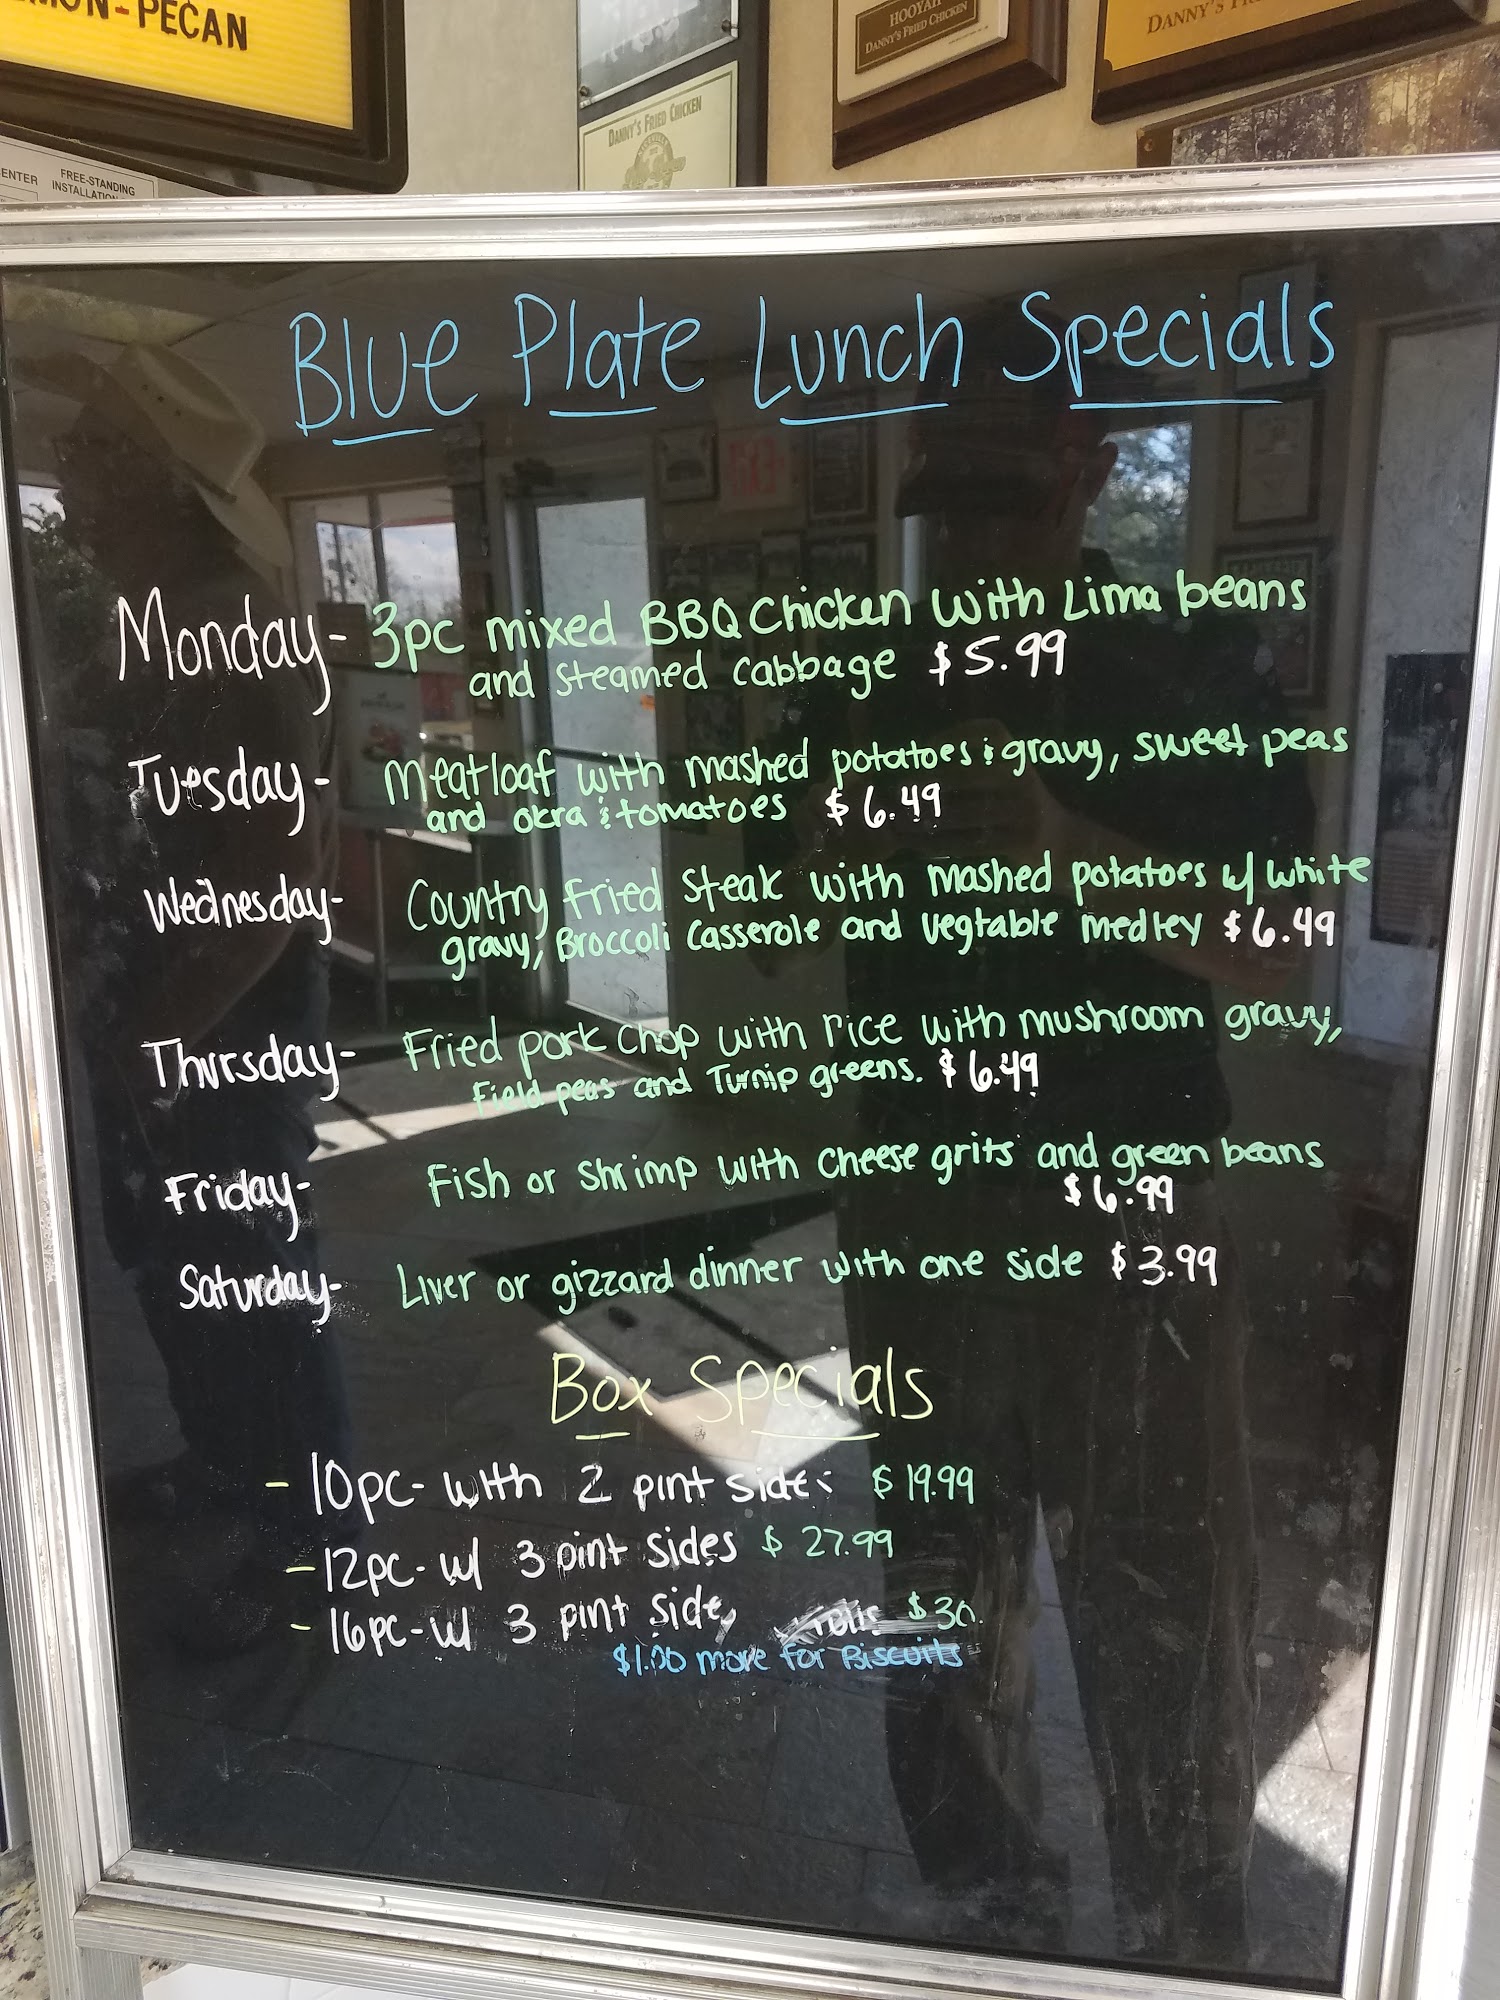 -PECAN
HOOYAH
DANNY'S FRIED CHICKEN
DANNY'S
DANNY'S FRIED CHICKEN
FREE-STANDING
INSTALLATION
Blue Plate Lunch Specials
Monday- 3pc mixed BBQ Chicken with Lima beans
and steamed cabbage $5.99
Tuesday- Meatloaf with mashed potatoes & gravy, sweet peas
and okra & tomatoes $6.49
Wednesday- Country fried steak with mashed potatoes w/ white
gravy, Broccoli Casserole and vegtable medley $6.49
Thursday- Fried pork chop with rice with mushroom gravy,
Field peas and Turnip greens. $6.49
Friday- Fish or shrimp with cheese grits and green beans
$6.99
Saturday- Liver or gizzard dinner with one side $3.99
Box Specials
- 10pc- with 2 pint sides $19.99
- 12pc- w/ 3 pint sides $27.99
- 16pc- w/ 3 pint side, rolls $30.
$1.00 more for Biscuits